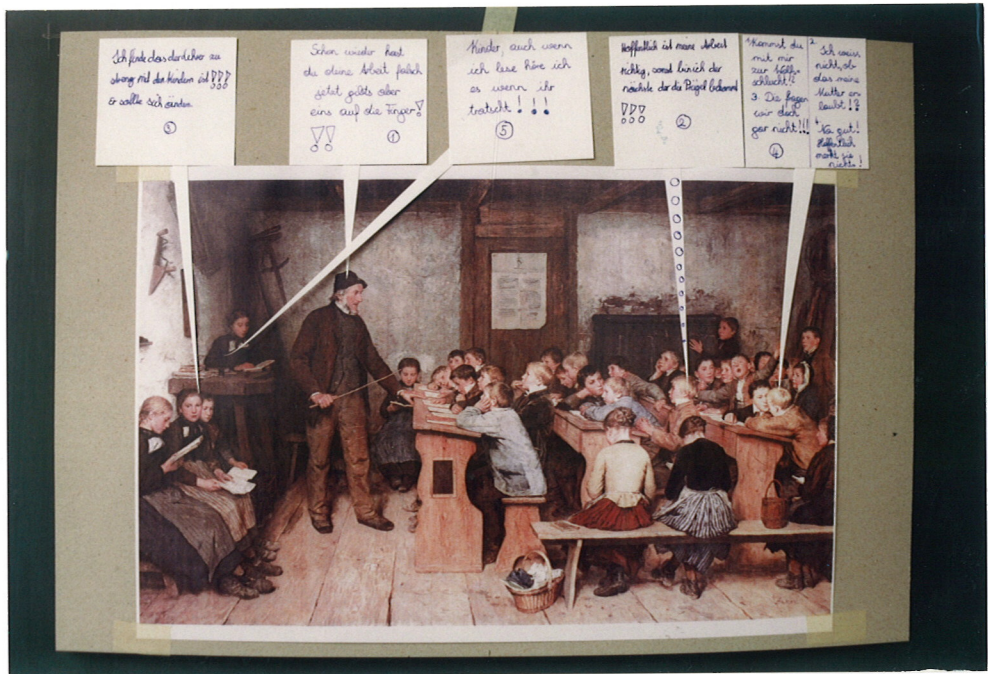 Ich finde das der Lehrer zu
streng mit den Kindern ist!!!
Er sollte sich ändern.
3
Schon wieder hast
du deine Arbeit falsch
jetzt gibts aber
eins auf die Finger!
!!
1
Kinder, auch wenn
ich lese höre ich
es wenn ihr
tratscht!!!
5
Hoffentlich ist meine Arbeit
richtig, sonst bin ich der
nächste der die Prügel bekommt
!!!
2
1. Kommst du
mit mir
zur
3. Die fragen
wir doch
gar nicht!!!
4
2.
Ich weiss
nicht, ob
das meine
Mutter er-
laubt!?
4.
Na gut!
Hoffentlich
merkt sie
nichts!